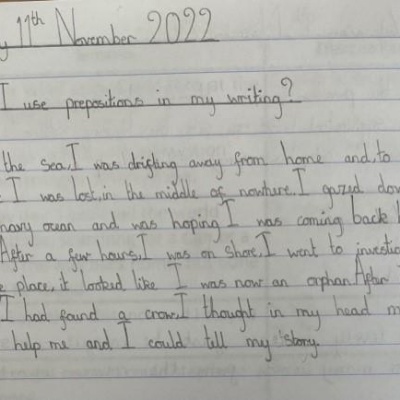 y 11th November 2022
I use prepositions in my writing?
the sea, I was drifting away from home and, to
I was lost, in the middle of nowhere. I gazed dow
ocean and was hoping I was coming back h
After a few hours, I was on shore, I went to investig
place, it looked like I was now an orphan. After
I had found a crow, I thought in my head m
help me and I could tell my story.